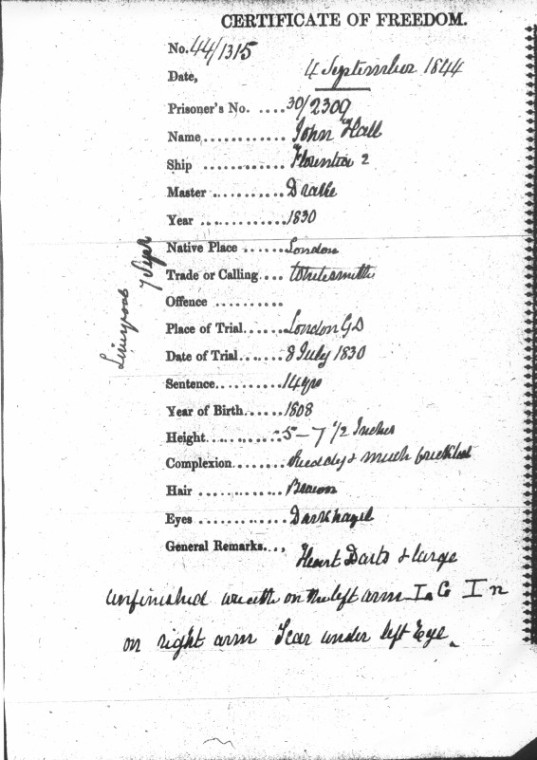 CERTIFICATE OF FREEDOM.
No. 44/1315
Date, 4 September 1844
Prisoner's No. .... 30/2309
Name ............ John Hall
Ship ............ Florentia 2
Master ........... Drake
Year ............. 1830
Native Place ...... London
Trade or Calling.... Whitesmith
Offence ..........
Place of Trial...... London G.D
Date of Trial....... 8 July 1830
Sentence.......... 14 yrs
Year of Birth...... 1808
Height........... 5-7 1/2 Inches
Complexion....... Ruddy & much freckled
Hair ............. Brown
Eyes ............. Dark hazel
General Remarks.... Heart Darts & large
unfinished wreath on the left arm I G I n
on right arm Scar under left Eye.
Liverpool
7 Sepr